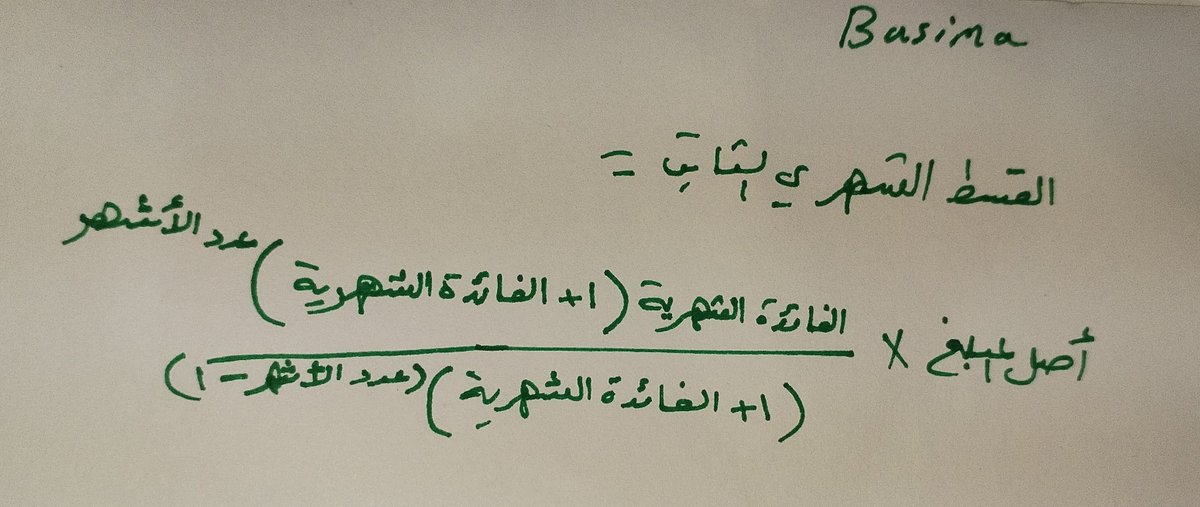 Basima
القسط الشهري الثابت =
أصل المبلغ × الفائدة الشهرية (١+ الفائدة الشهرية) عدد الأشهر
(١+ الفائدة الشهرية) (عدد الأشهر - ١)